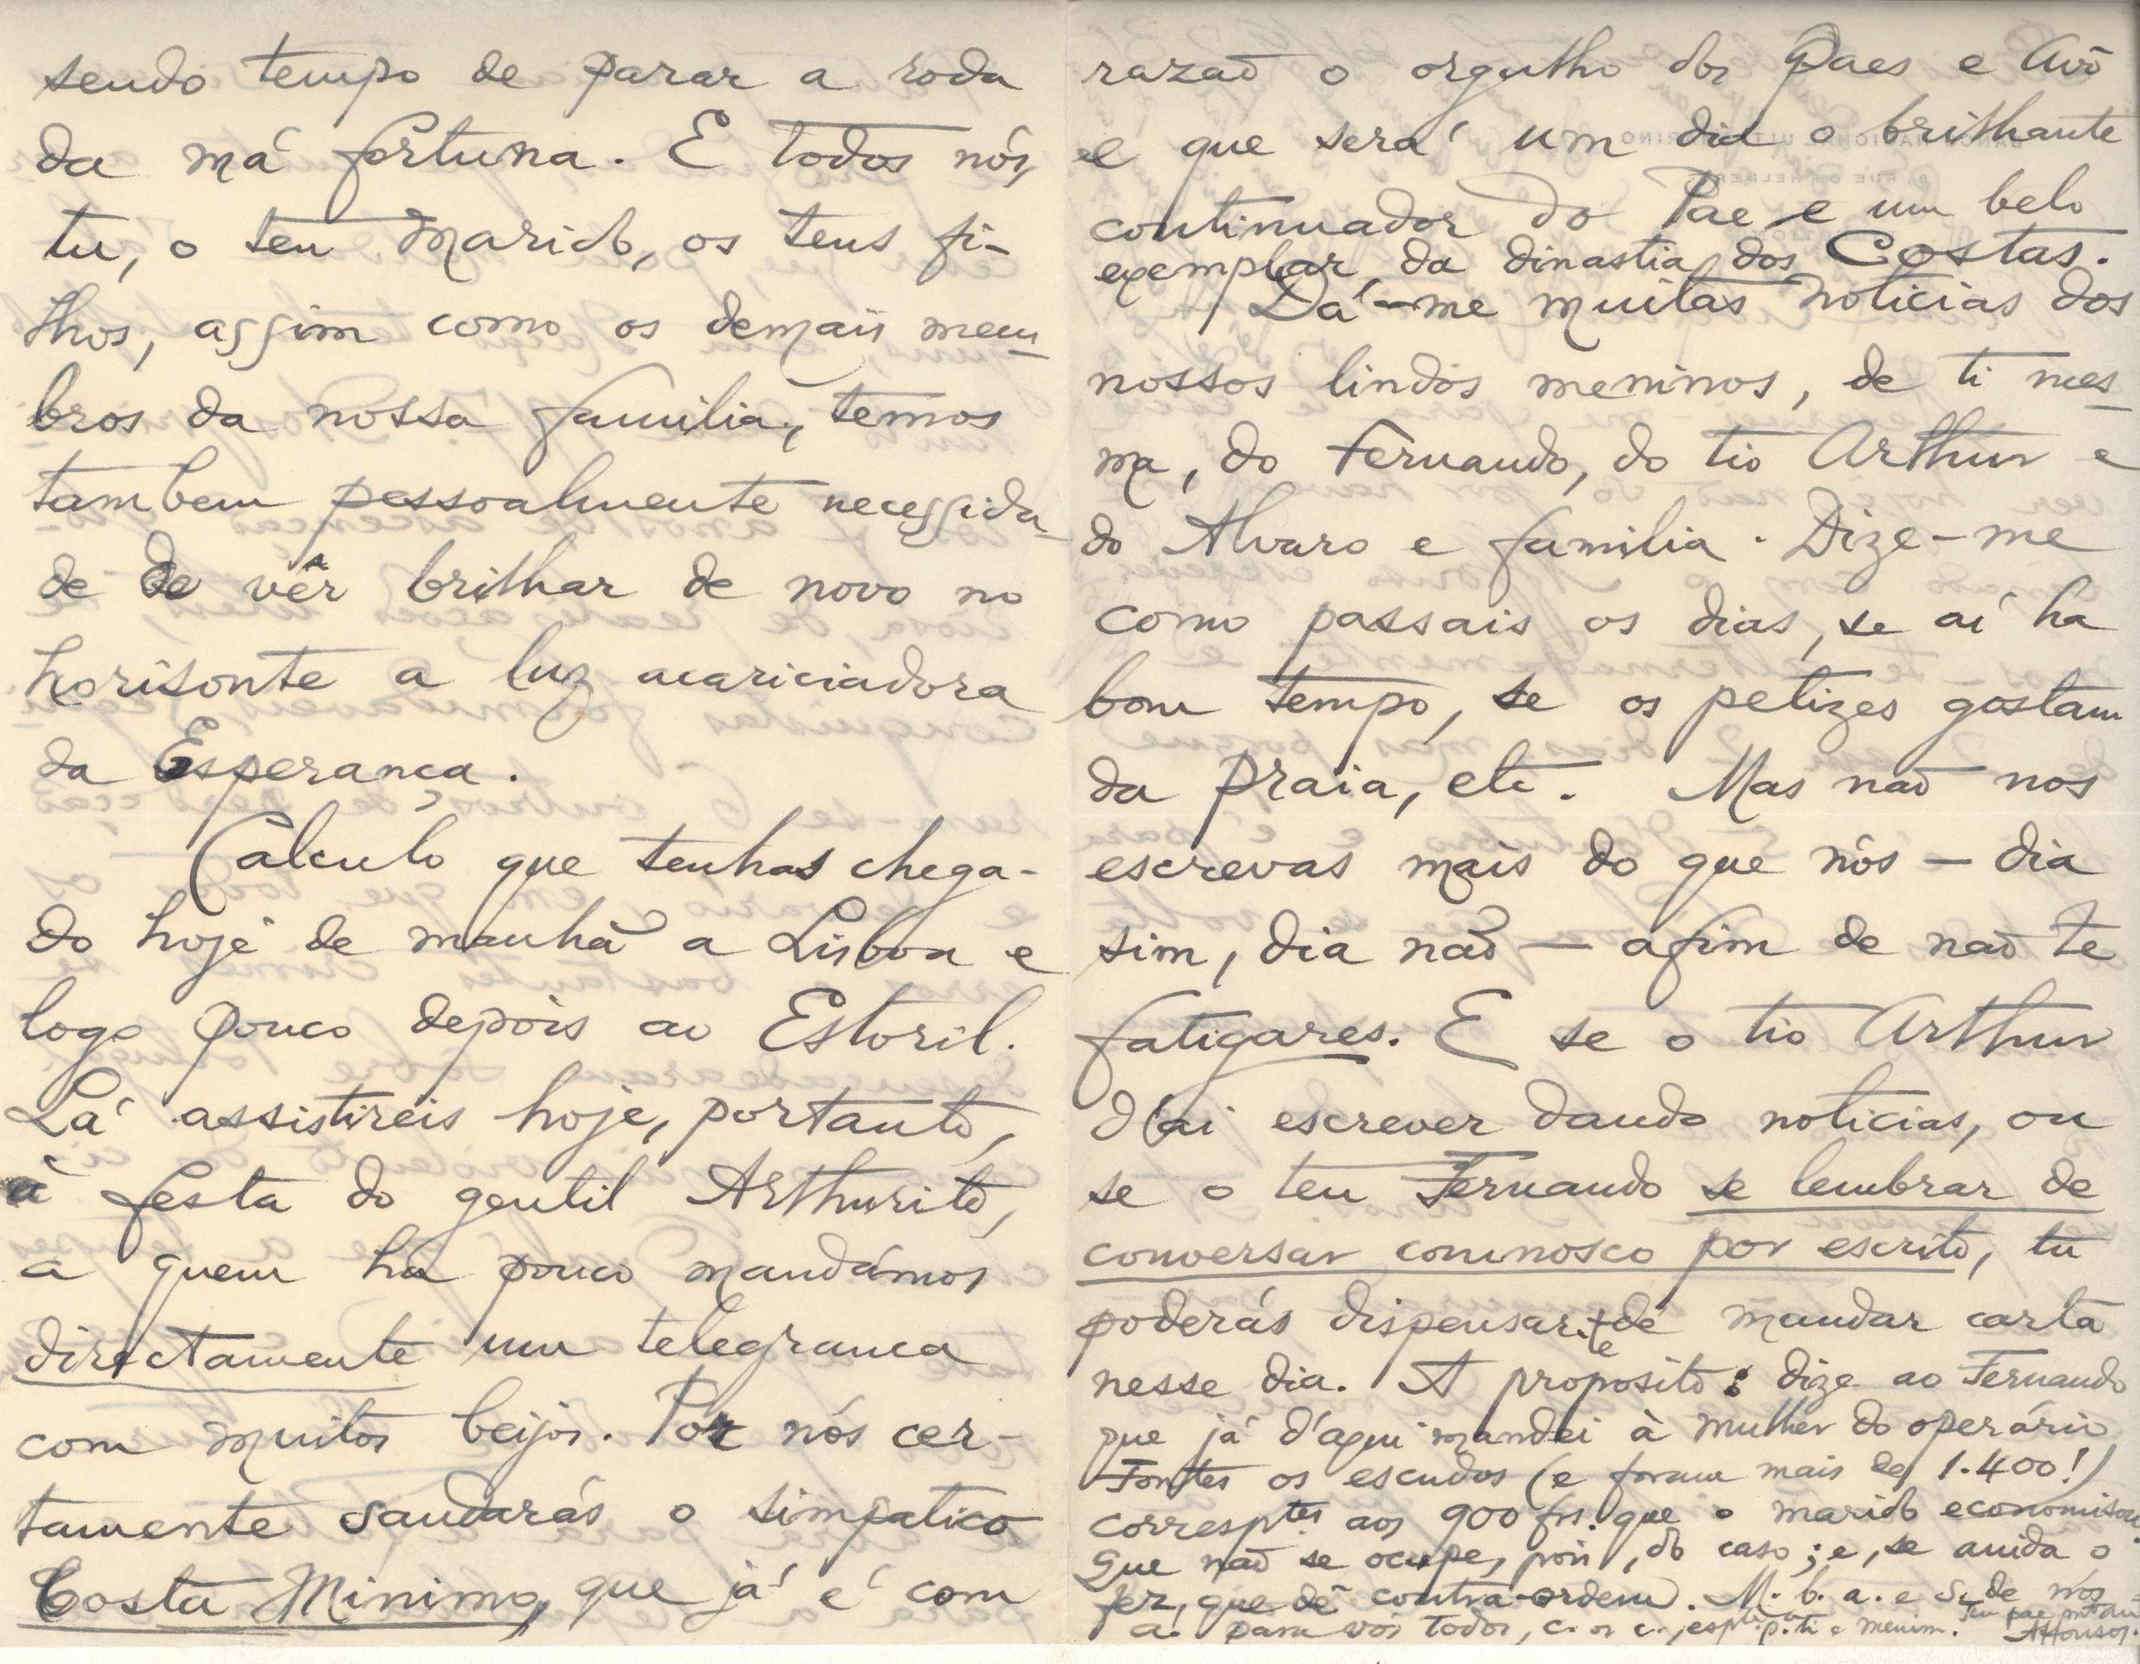 sendo tempo de parar a roda
da má fortuna. E todos nós,
tu, o teu Marido, os teus fi-
lhos, assim como os demais mem-
bros da nossa familia, temos
tambem pessoalmente necessida-
de de vêr brilhar de novo no
horisonte a luz acariciadora
da Esperança.
Calculo que tenhas chega-
do hoje de manhã a Lisboa e
logo pouco depois ao Estoril.
Lá assistireis hoje, portanto,
à festa do gentil Arthurito,
a quem há pouco mandámos
directamente um telegrama
com muitos beijos. Por nós cer-
tamente saudarás o simpatico
Costa Minimo, que já é com
razaõ o orgulho dos Paes e Avó
e que será um dia o brilhante
continuador do Pae e um belo
exemplar da dinastia dos Costas.
Dá-me muitas noticias dos
nossos lindos meninos, de ti mes-
ma, do Fernando, do tio Arthur e
do Alvaro e familia. Dize-me
como passais os dias, se aí ha
bom tempo, se os petizes gostam
da praia, etc. Mas naõ nos
escrevas mais do que nós — dia
sim, dia naõ — afim de naõ te
fatigares. E se o tio Arthur
d'ai escrever dando noticias, ou
se o teu Fernando se lembrar de
conversar comnosco por escrito, tu
poderás dispensar-te de mandar carta
nesse dia. A proposito: dize ao Fernando
que já d'aqui mandei à mulher do operário
Fontes os escudos (e foram mais de 1.400!)
corresptes aos 900 frs. que o marido economisou.
Que naõ se ocupe, pois, do caso; e, se ainda o
fez, que dê contra-ordem. M. b. a. e s. de nós
a. para vós todos, c. os c., esplte p. ti e menin. Teu pae mto am
Affonso.